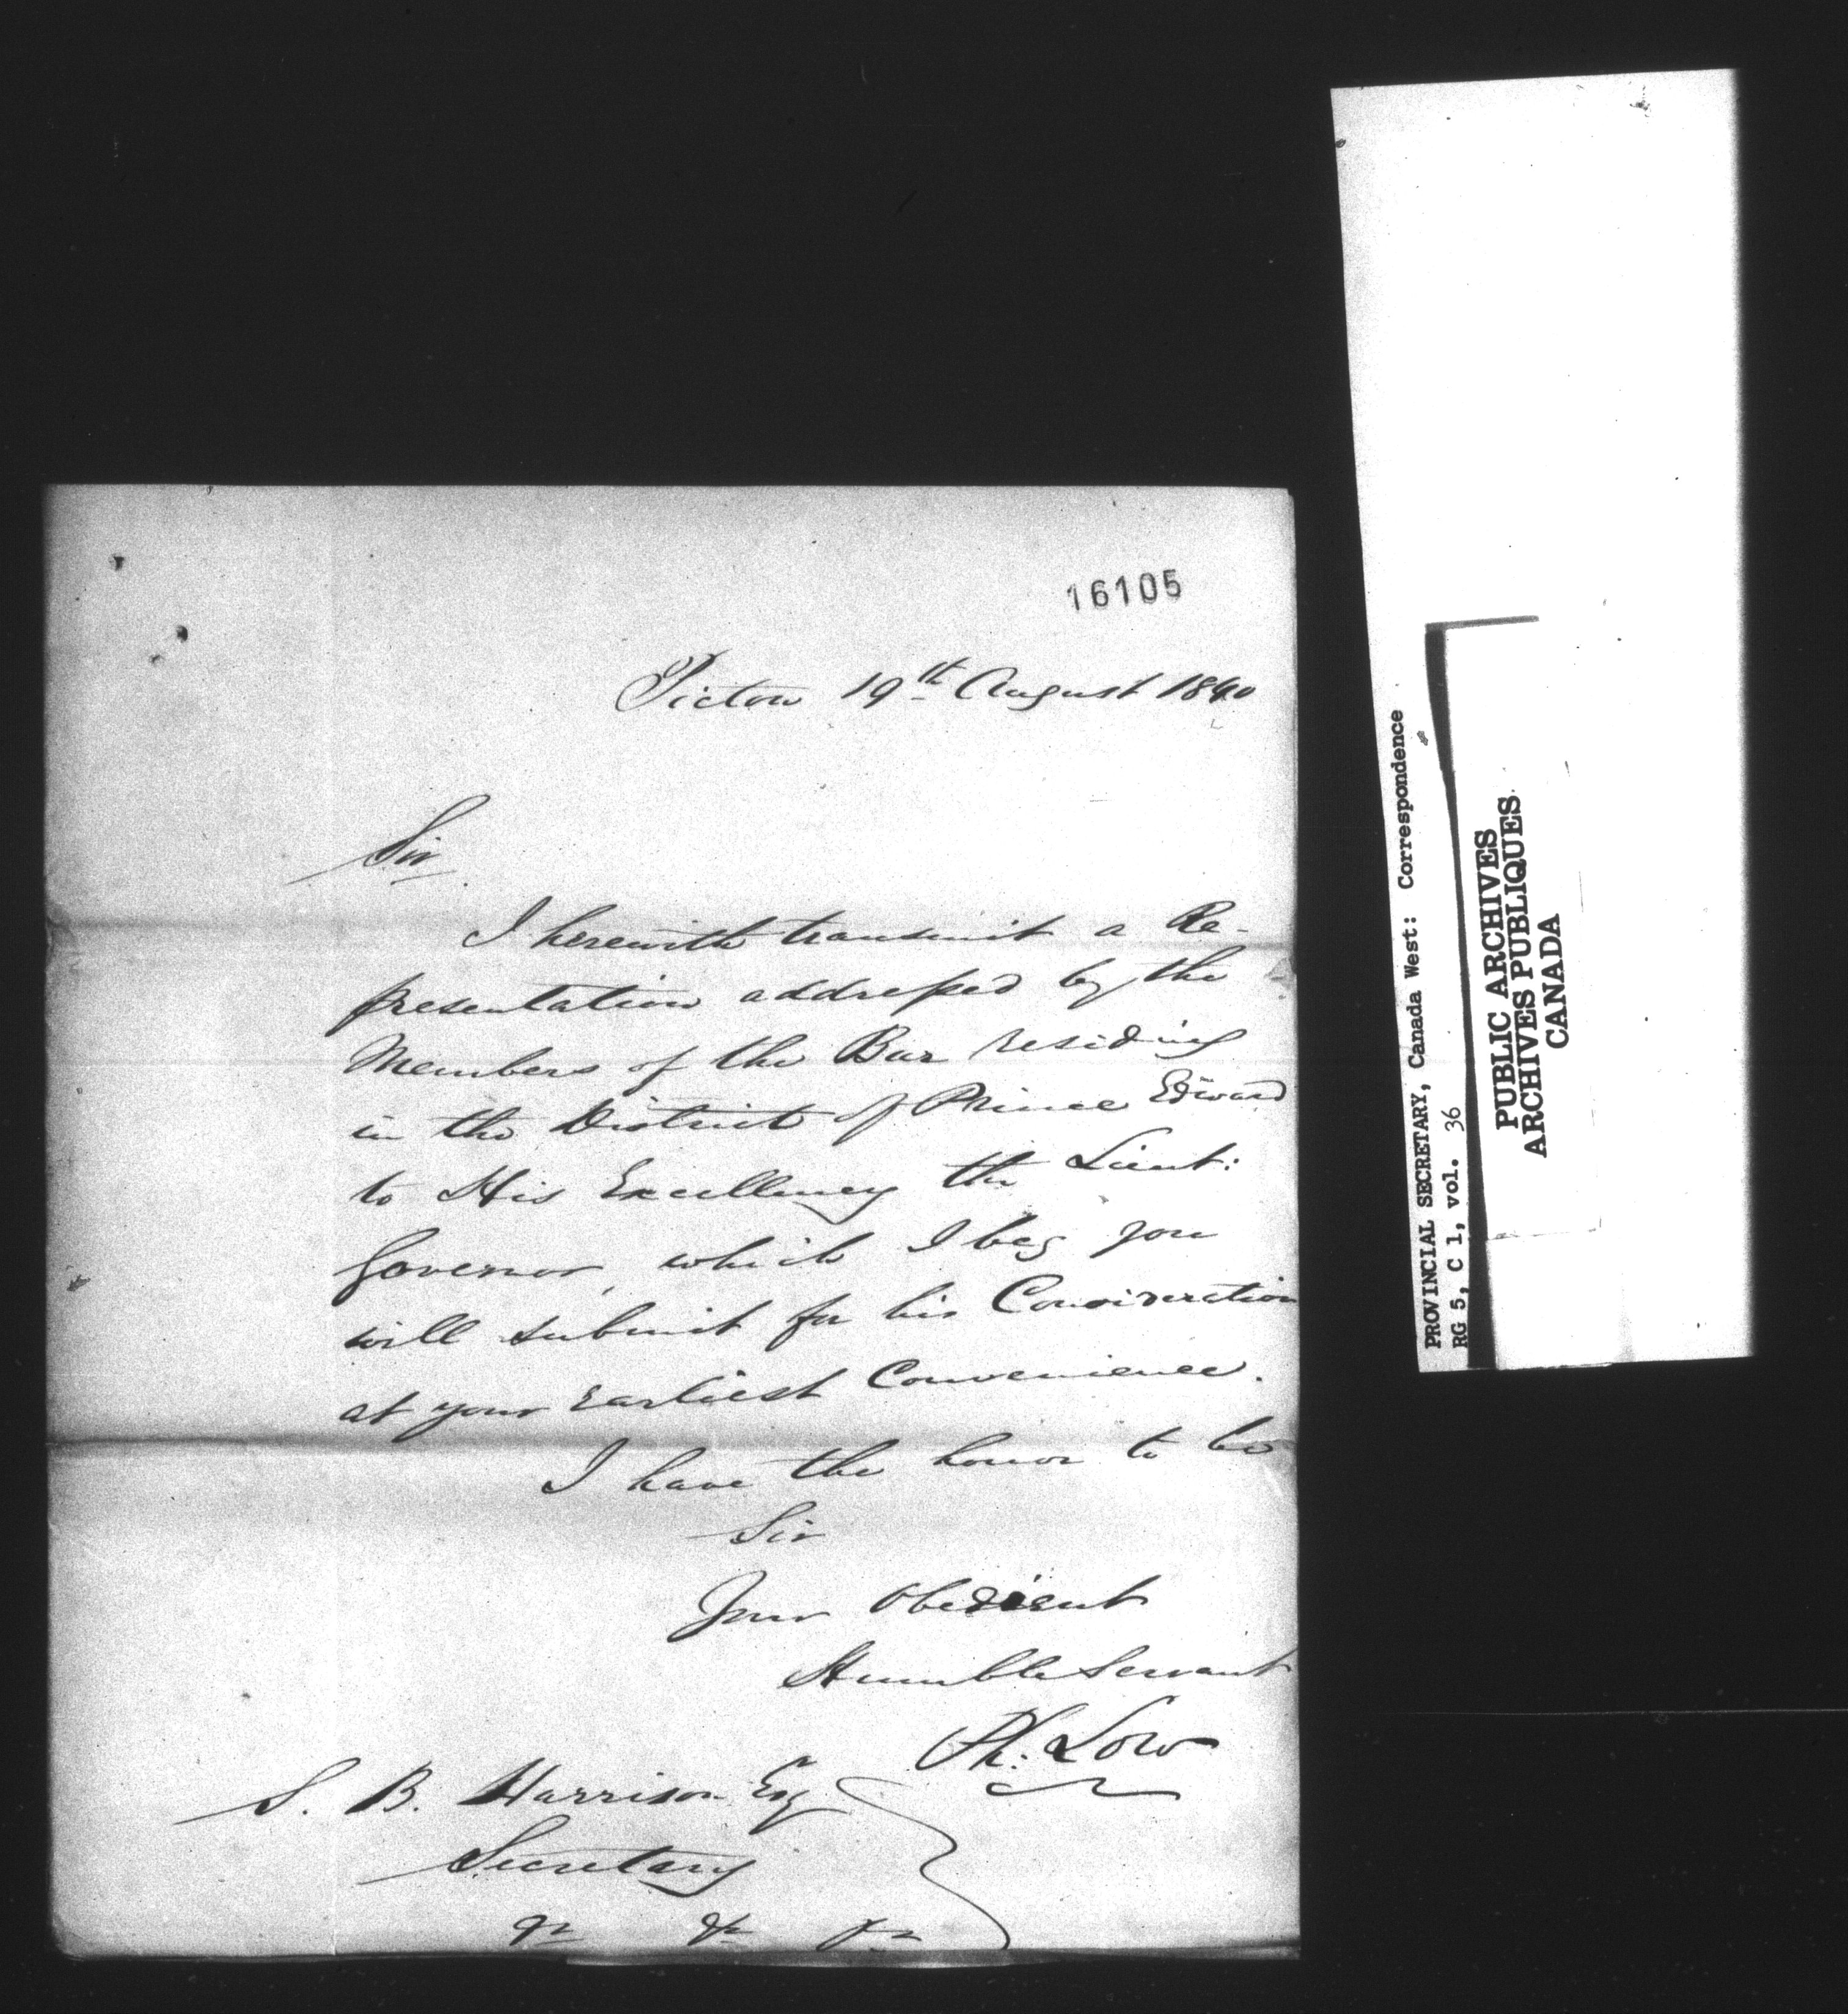 16105
Picton 19th August 1840
Sir
I herewith transmit a Re-
presentation addressed by the
Members of the Bar residing
in the District of Prince Edward
to His Excellency the Lieut:
Governor, which I beg you
will submit for his Consideration
at your earliest Convenience.
I have the honor to be
Sir
Your Obedient
Humble Servant
Ph. Low
S. B. Harrison Esq
Secretary
&c &c &c
PROVINCIAL SECRETARY, Canada West: Correspondence
RG 5, C 1, vol. 36
PUBLIC ARCHIVES
ARCHIVES PUBLIQUES
CANADA